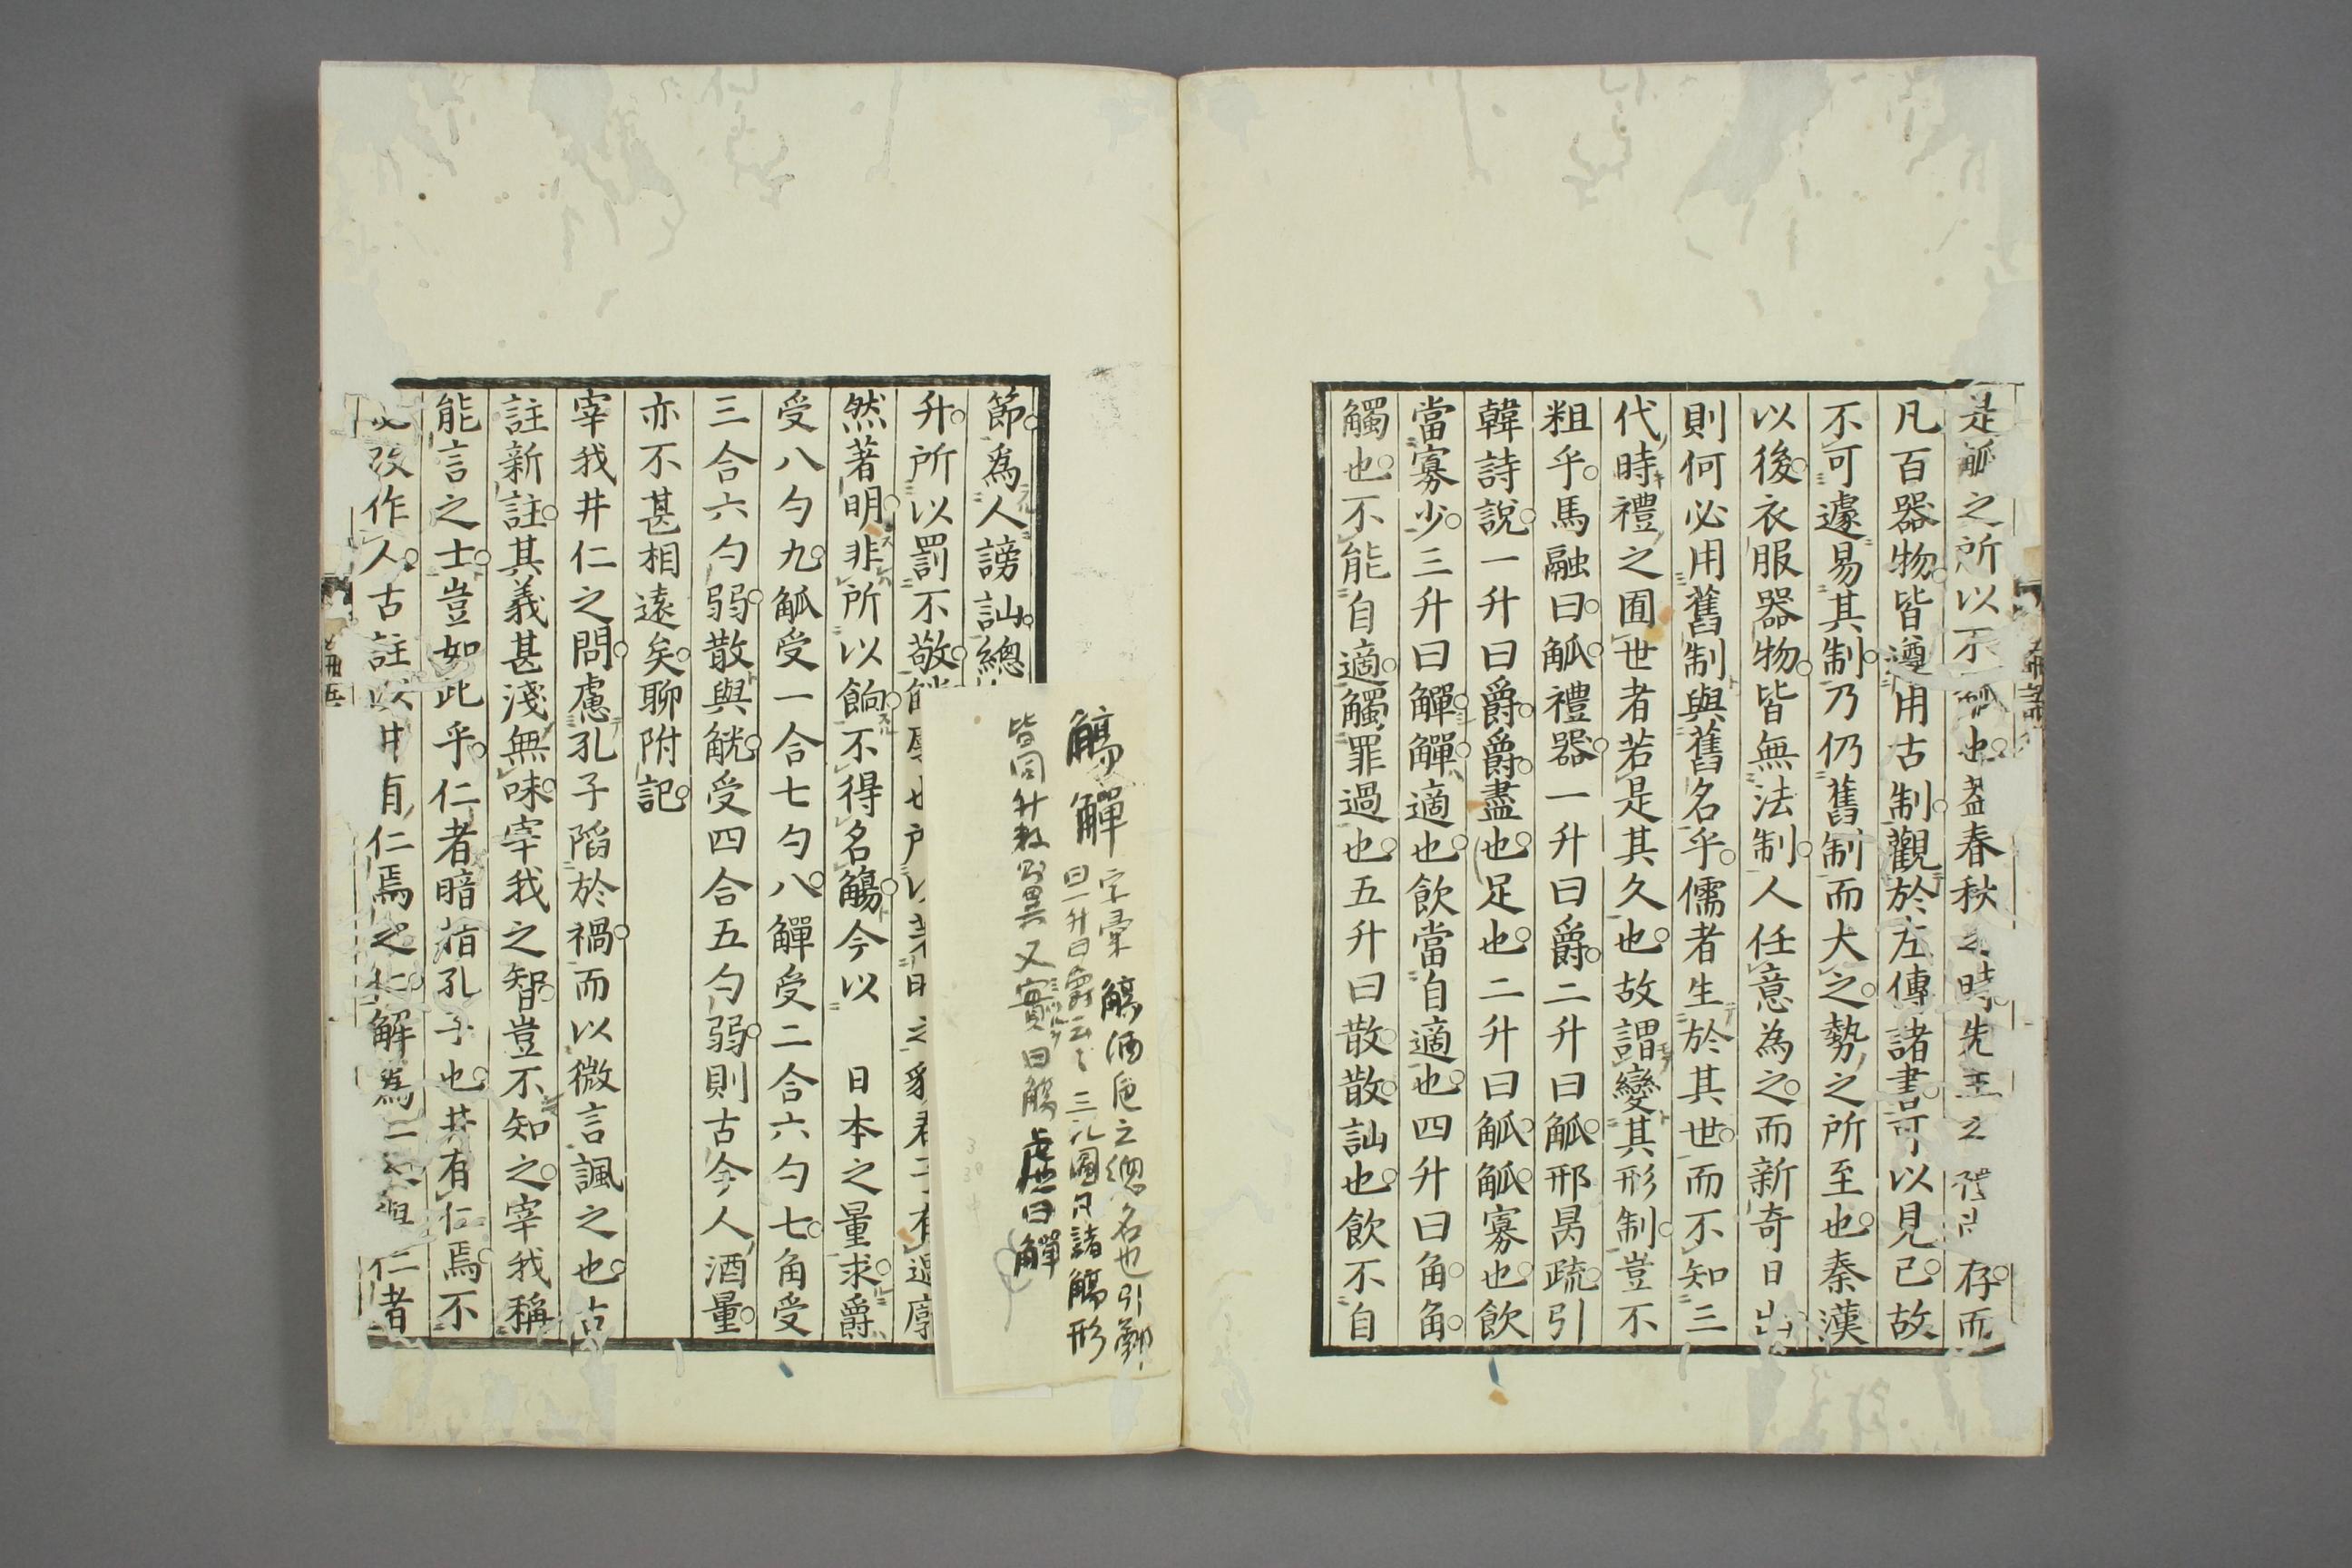 是觚之所以不觚也盖春秋之時先王之禮尚存而
凡百器物皆遵用古制觀於左傳諸書可以見已故
不可遽易其制乃仍舊制而大之勢之所至也秦漢
以後衣服器物皆無法制人任意為之而新奇日出
則何必用舊制與舊名乎儒者生於其世而不知三
代時禮之囿世者若是其久也故謂變其形制豈不
粗乎馬融曰觚禮器一升曰爵二升曰觚邢昺疏引
韓詩說一升曰爵爵盡也足也二升曰觚觚寡也飲
當寡少三升曰觶觶適也飲當自適也四升曰角角
觸也不能自適觸罪過也五升曰散散訕也飲不自
觴觶字彙觴酒巵之總名也引鄭
曰一升曰爵云〻三礼圖凡諸觴形
皆同升数則異又實曰觴虚曰觶
節為人謗訕總
升所以罰不敬
然著明非所以餉不得名觴今以 日本之量求爵
受八勺九觚受一合七勺八觶受二合六勺七角受
三合六勺弱散與觥受四合五勺弱則古今人酒量
亦不甚相遠矣聊附記
宰我井仁之問慮孔子陷於禍而以微言諷之也古
註新註其義甚淺無味宰我之智豈不知之宰我稱
能言之士豈如此乎仁者暗指孔子也井有仁焉不
必改作人古註以井有仁焉之仁解為仁者